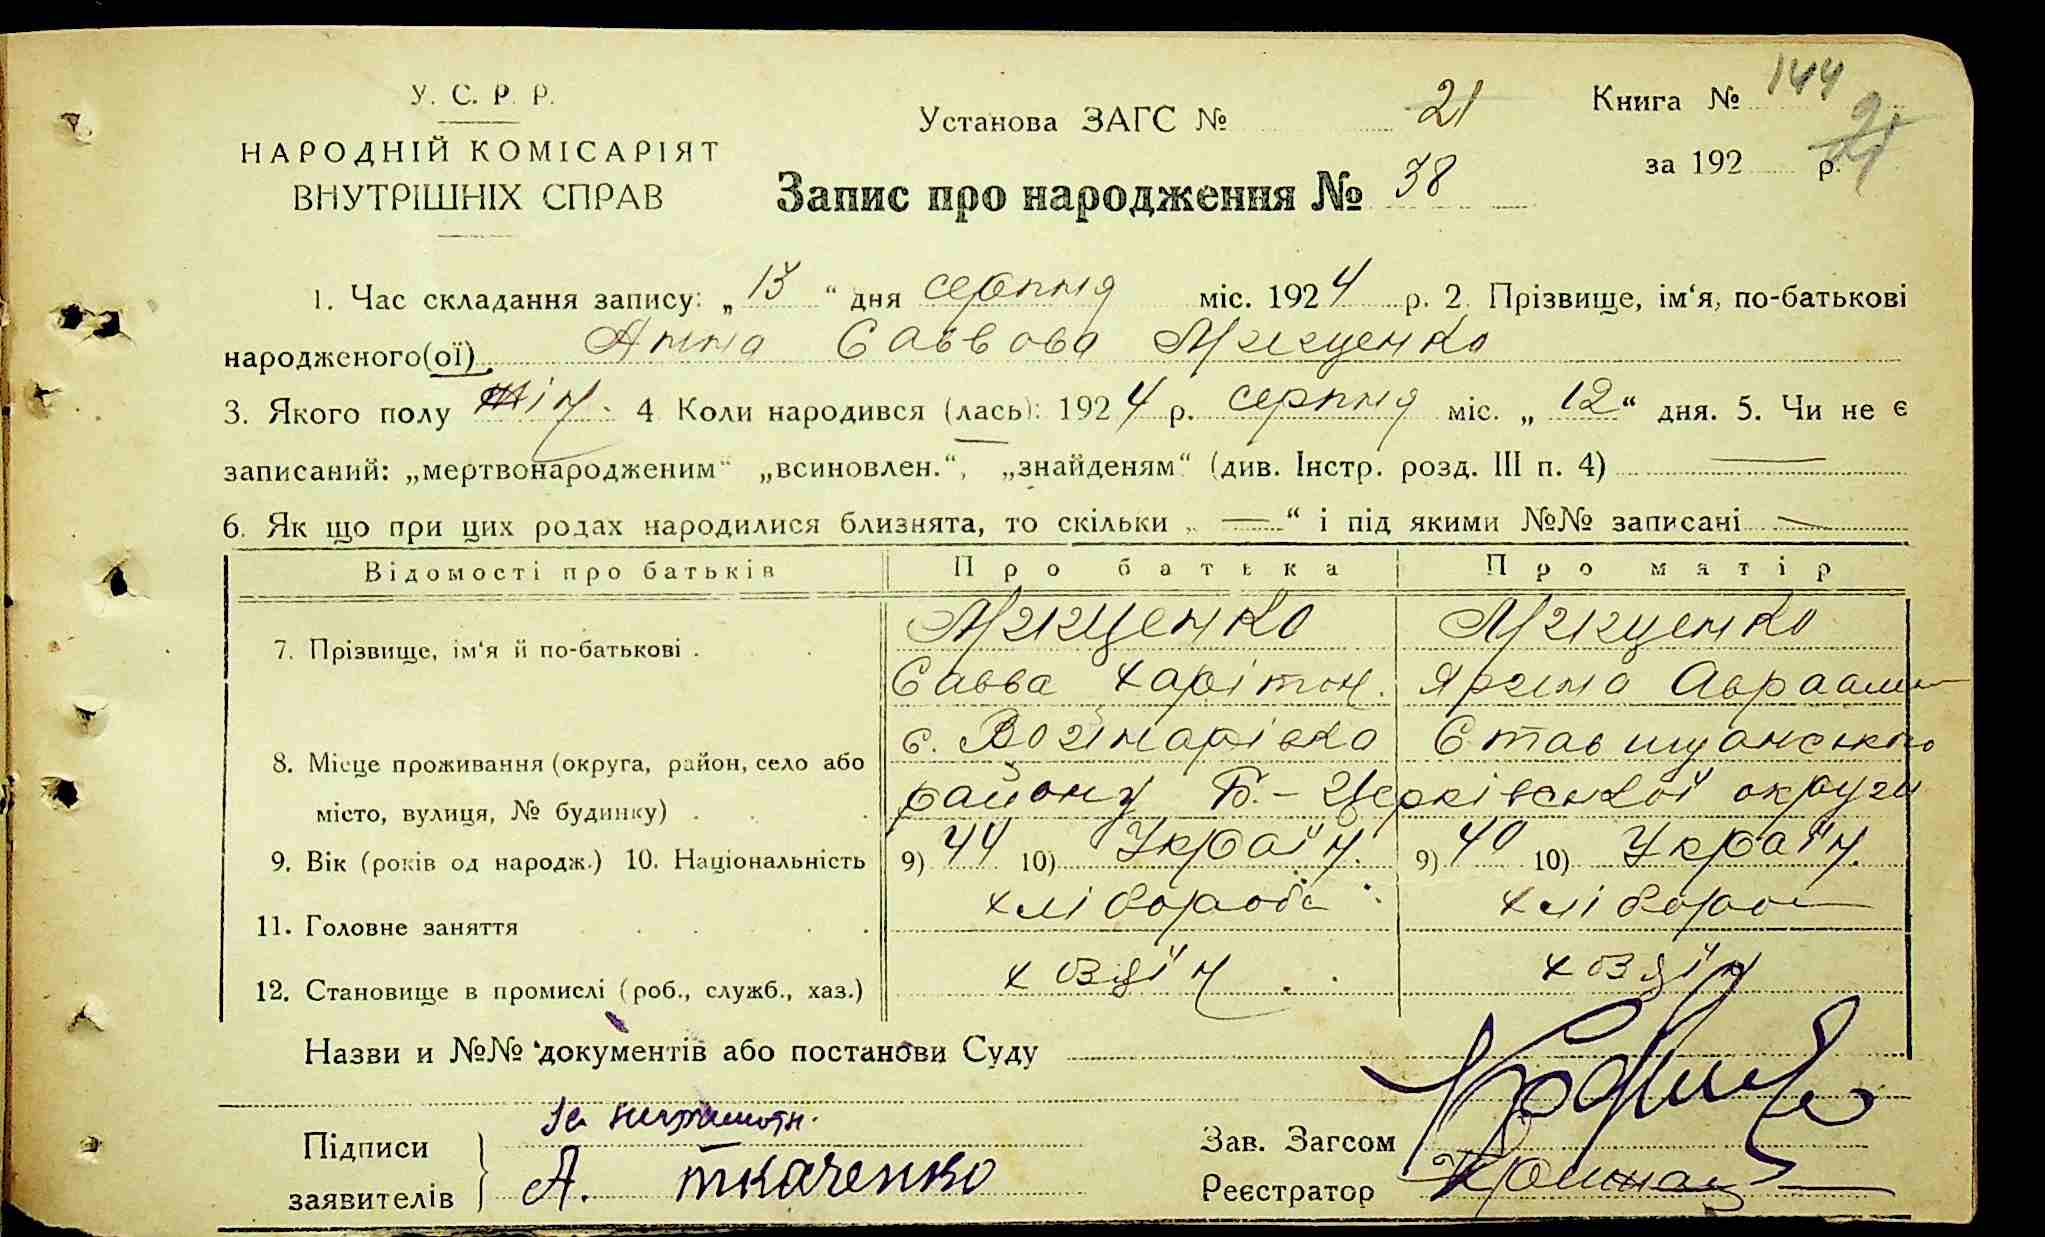 У. С. Р. Р.
НАРОДНІЙ КОМІСАРІЯТ
ВНУТРІШНІХ СПРАВ
Установа ЗАГС № 21
Запис про народження № 38
Книга № 144
за 192 р.
1. Час складання запису: „13“ дня серпня міс. 1924 р. 2. Прізвище, ім‘я, по-батькові
народженого(ої) Анна Саввова
3. Якого полу жін. 4 Коли народився (лась): 1924 р. серпня міс. „12“ дня. 5. Чи не є
записаний: „мертвонародженим“ „всиновлен.“, „знайденям“ (див. Інстр. розд. III п. 4) —
6. Як що при цих родах народилися близнята, то скільки „—“ і під якими №№ записані —
Відомості про батьків Про батька Про матір
7. Прізвище, ім‘я й по-батькові .
Савва Харітон. Ярина Авраам
8. Місце проживання (округа, район, село або
місто, вулиця, № будинку) .
с. Войнарівка Ставищанського
району Б.-Церківської округи
9. Вік (років од народж.) 10. Національність 9) 44 10) Україн. 9) 40 10) Україн.
11. Головне заняття хлібороб хлібороб
12. Становище в промислі (роб., служб., хаз.) хозяїн хозяїн
Назви и №№ документів або постанови Суду
Підписи
заявителів
За неграмотн.
А. Ткаченко
Зав. Загсом
Реєстратор